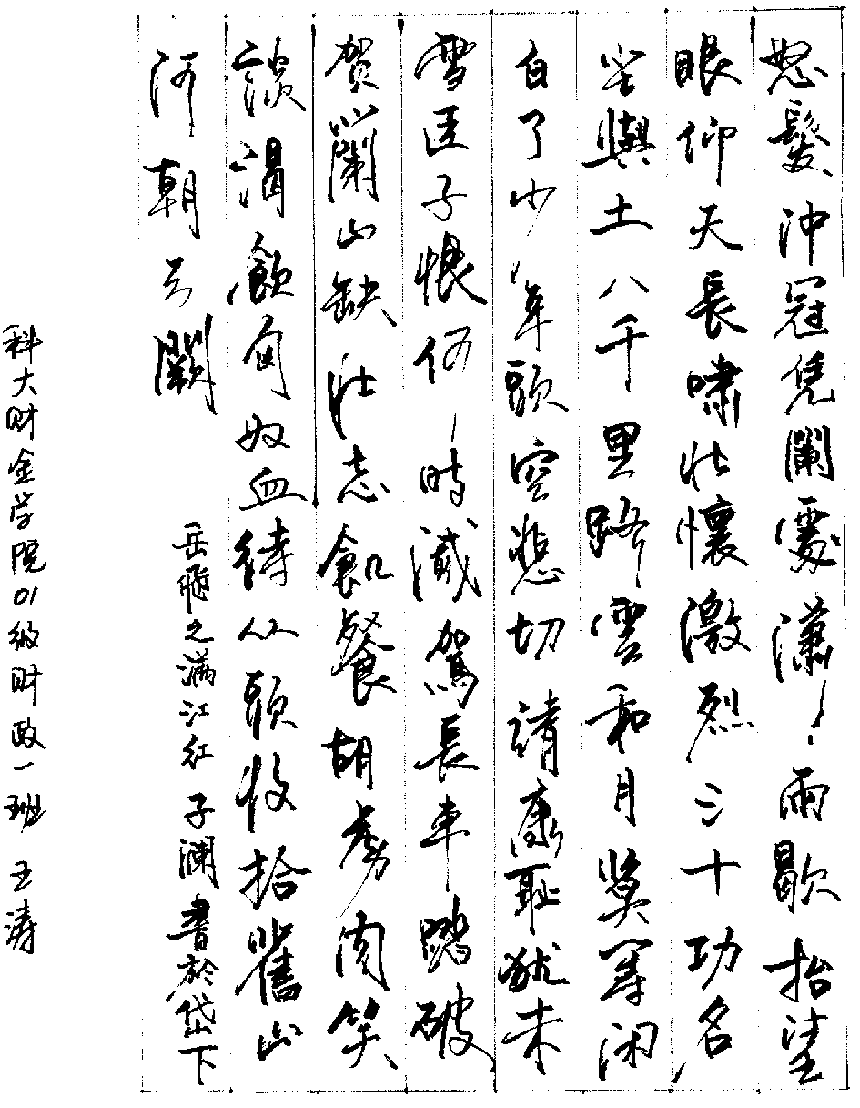 怒髮沖冠凭闌處瀟瀟雨歇抬望
眼仰天長嘯壯懷激烈三十功名
塵與土八千里路雲和月莫等闲
白了少年頭空悲切靖康耻犹未
雪臣子恨何時滅駕長車踏破
賀蘭山缺壯志飢餐胡虜肉笑
談渴飲匈奴血待从頭收拾舊山
河朝天闕
岳飛之满江红 子澜書於岱下
科大财金学院01级财政一班 王涛